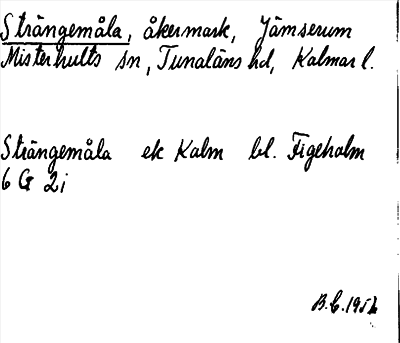 Strängemåla, åkermark, Jämserum
Misterhults sn, Tunaläns hd, Kalmar l.
Strängemåla ek Kalm bl. Figeholm
6 G 2i
B.C.